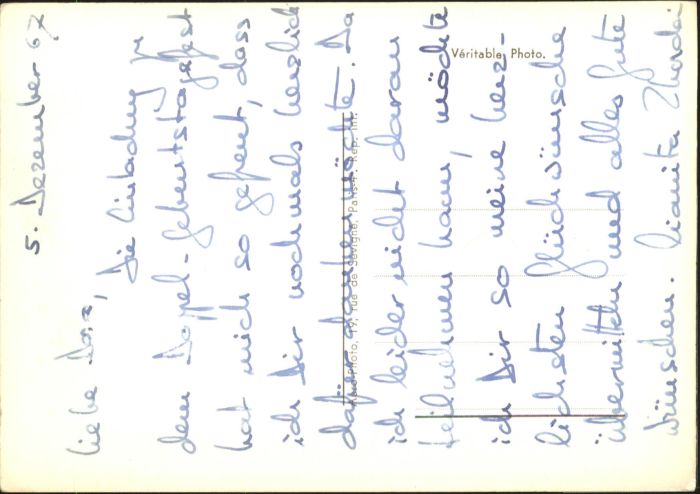 5. Dezember 67
Liebe Dora,
Die Einladung zu
dem Doppel-Geburtstagsfest
hat mich so gefreut, dass
ich Dir nochmals herzlich
dafür danken möchte. Da
ich leider nicht daran
teilnehmen kann, möchte
ich Dir so meine herz-
lichsten Glückwünsche
übermitteln und alles Gute
wünschen.
Véritable Photo.
Photo, 19, rue de Sévigné, Paris-4. Rep. Int.